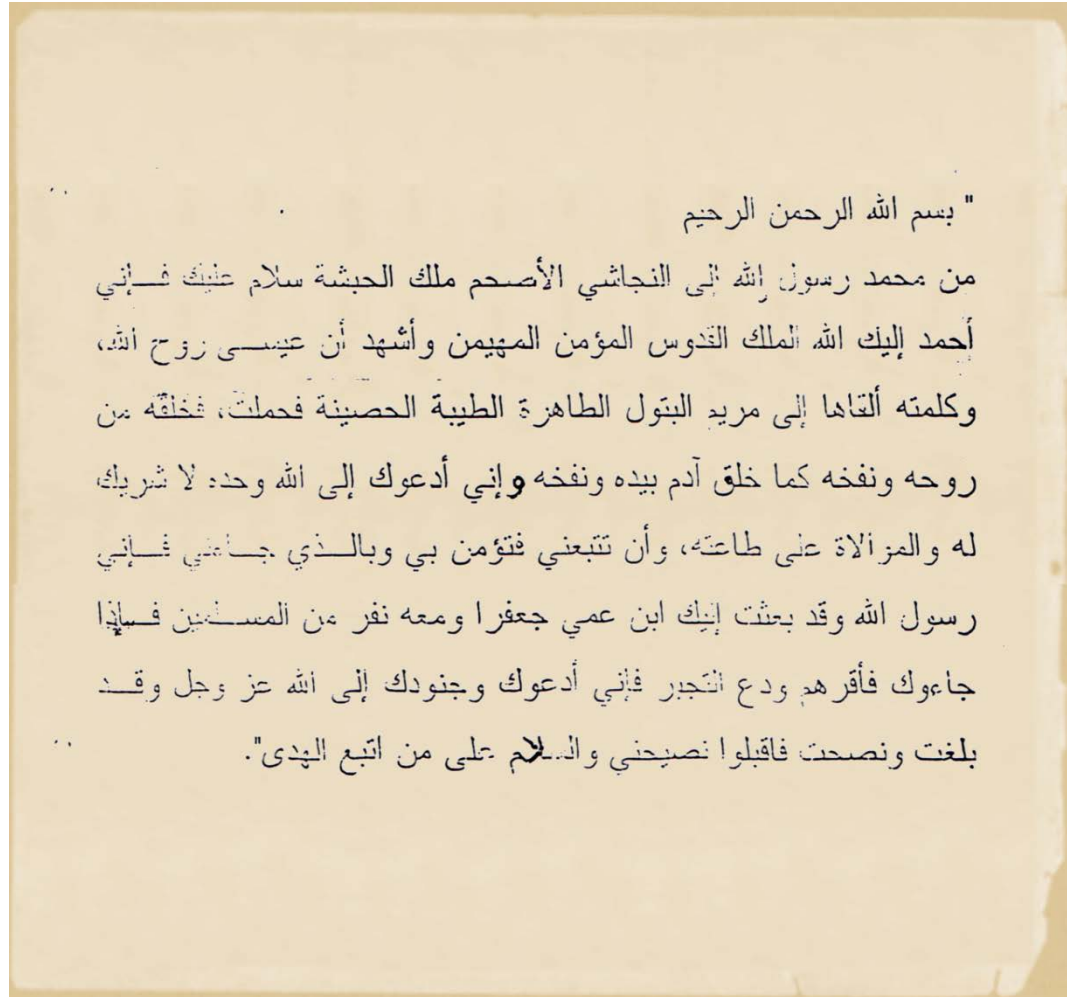 " بسم الله الرحمن الرحيم
من محمد رسول الله إلى النجاشي الأصحم ملك الحبشة سلام عليك فإني
أحمد إليك الله الملك القدوس المؤمن المهيمن وأشهد أن عيسى روح الله،
وكلمته ألقاها إلى مريم البتول الطاهرة الطيبة الحصينة فحملت، فخلقه من
روحه ونفخه كما خلق آدم بيده ونفخه وإني أدعوك إلى الله وحده لا شريك
له والموالاة على طاعته، وأن تتبعني فتؤمن بي وبالذي جاءني فإني
رسول الله وقد بعثت إليك ابن عمي جعفرا ومعه نفر من المسلمين فإذا
جاءوك فأقرهم ودع التجبر فإني أدعوك وجنودك إلى الله عز وجل وقد
بلغت ونصحت فاقبلوا نصيحتي والسلام على من اتبع الهدى".